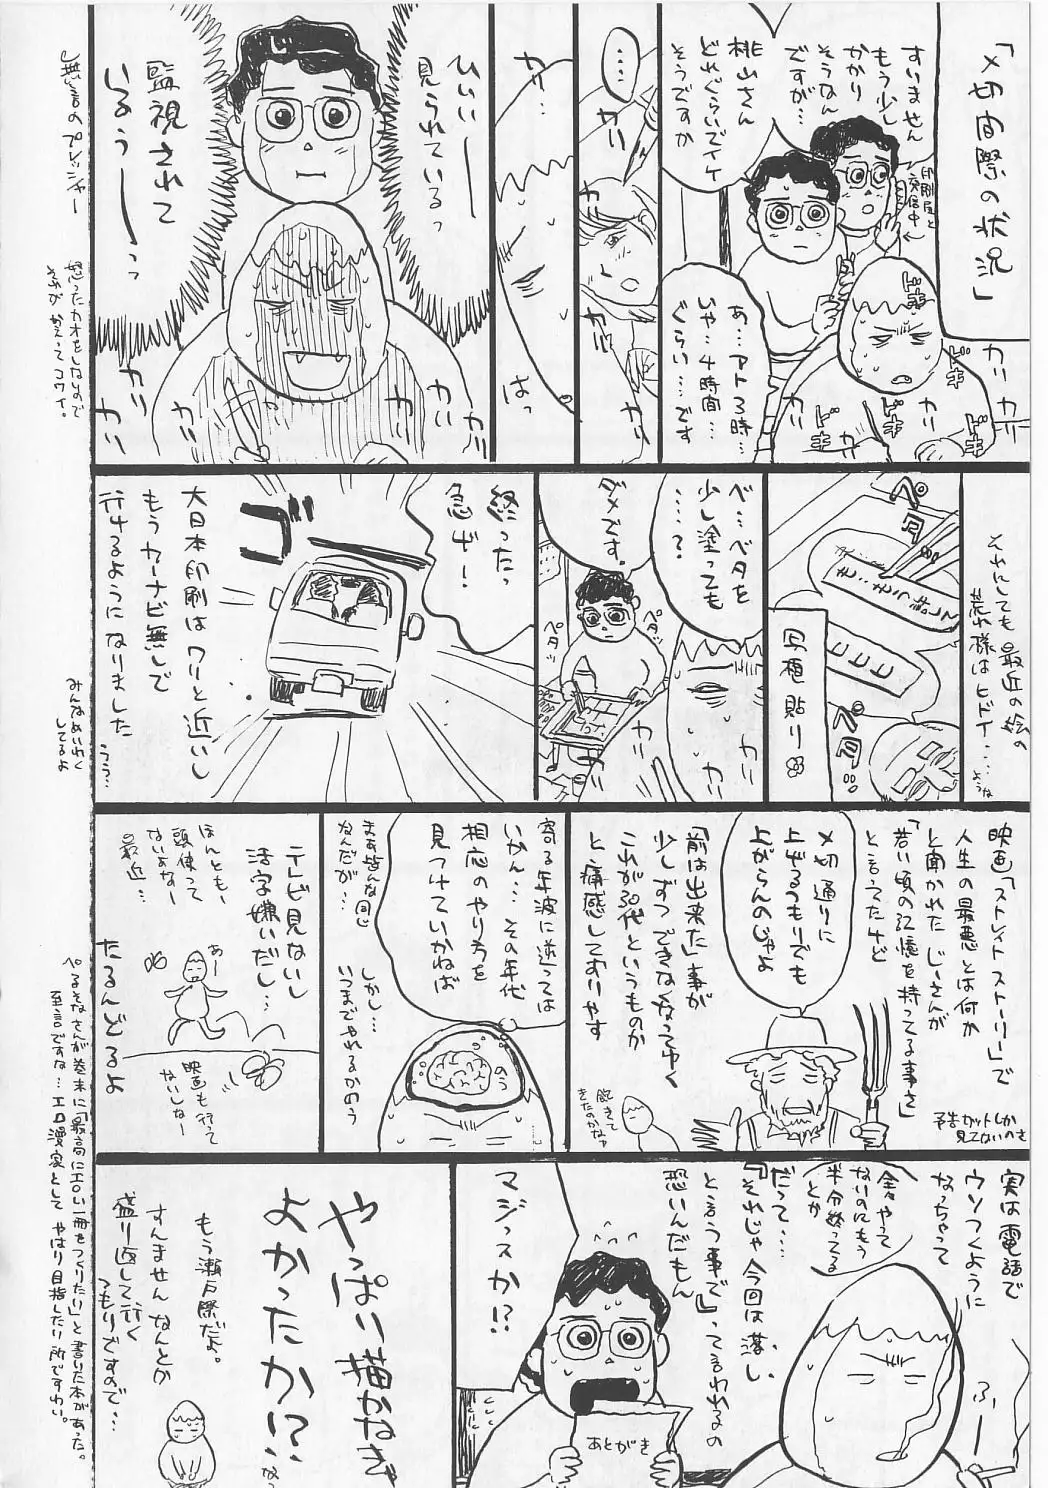 「〆切間際の状況」
すいません
もう少し
かかり
そうなん
ですが…
印刷屋と
交信中
桃山さん
どれぐらいでイケ
そうですか
あ…アト3時…
いや…4時間…
ぐらい…です
ドキ
ドキ
ドキ
ドキ
カリ
カリ
カリ
……
カリ
カリ
カリ
カリ…
はっ
ひぃぃーー
見られているっ
監視されて
いるぅーーっっ
カリ
カリ
カリ
カリ
カリ
無言のプレッシャー
怒ったカオをしないので
それがかえってコワイ。
それにしても最近の絵の
荒れ様はヒドイ…
ペタ
写植貼り
ペタ
ベ…ベタを
少し塗っても
……?
ダメです。
ペタッ
ペタッ
カリ
カリ
カリ
終ったっ
急げー!
ゴー
大日本印刷はワリと近いし
もうカーナビ無しで
行けるようになりました
うう…
みんなめいわく
してるよ
映画「ストレイトストーリー」で
人生の最悪とは何か
と聞かれたじーさんが
「若い頃の記憶を持ってる事さ」
と言ってたけど
予告カットしか
見てないのさ
〆切通りに
上げるつもりでも
上がらんのじゃよ
「前は出来た」事が
少しずつできなくなってゆく
これが30代というものか
と痛感しておりやす
飽きて
きたのかなァ
寄る年波に逆っては
いかん…その年代
相応のやり方を
見つけていかねば
のう
まあ皆んな同じ
なんだが…
しかし…
いつまでやれるかのう
テレビ見ないし
活字嫌いだし…
ほんとも、
頭使って
ないよなー
最近…
あー
映画も行って
ないしなー
たるんどるよ
ぺるそなさんが巻末に「最高にエロい一冊をつくりたい」と書いた本があった。
至言ですな…エロ漫家としてやはり目指したい所ですわい。
実は電話で
ウソつくように
なっちゃって
全々やって
ないのにもう
半分終ってる
とか
ふーー
だって…
『それじゃ今回は落し、
と言う事で』って言われるの
恐いんだもん
マジっスか!?
あとがき
やっぱい描かねき
よかったかい?
な
もう瀬戸際だよ。
すんませんなんとか
盛り返して行く
つもりですので…